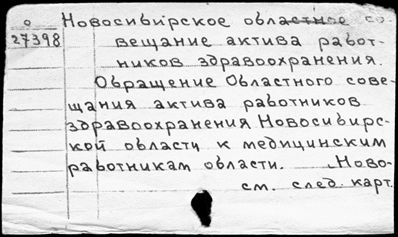 о Новосибирское областное со-
27398 вещание актива работ-
ников здравоохранения.
Обращение Областного сове-
щания актива работников
здравоохранения Новосибирс-
кой области к медицинским
работникам области. Ново-
см. след. карт.